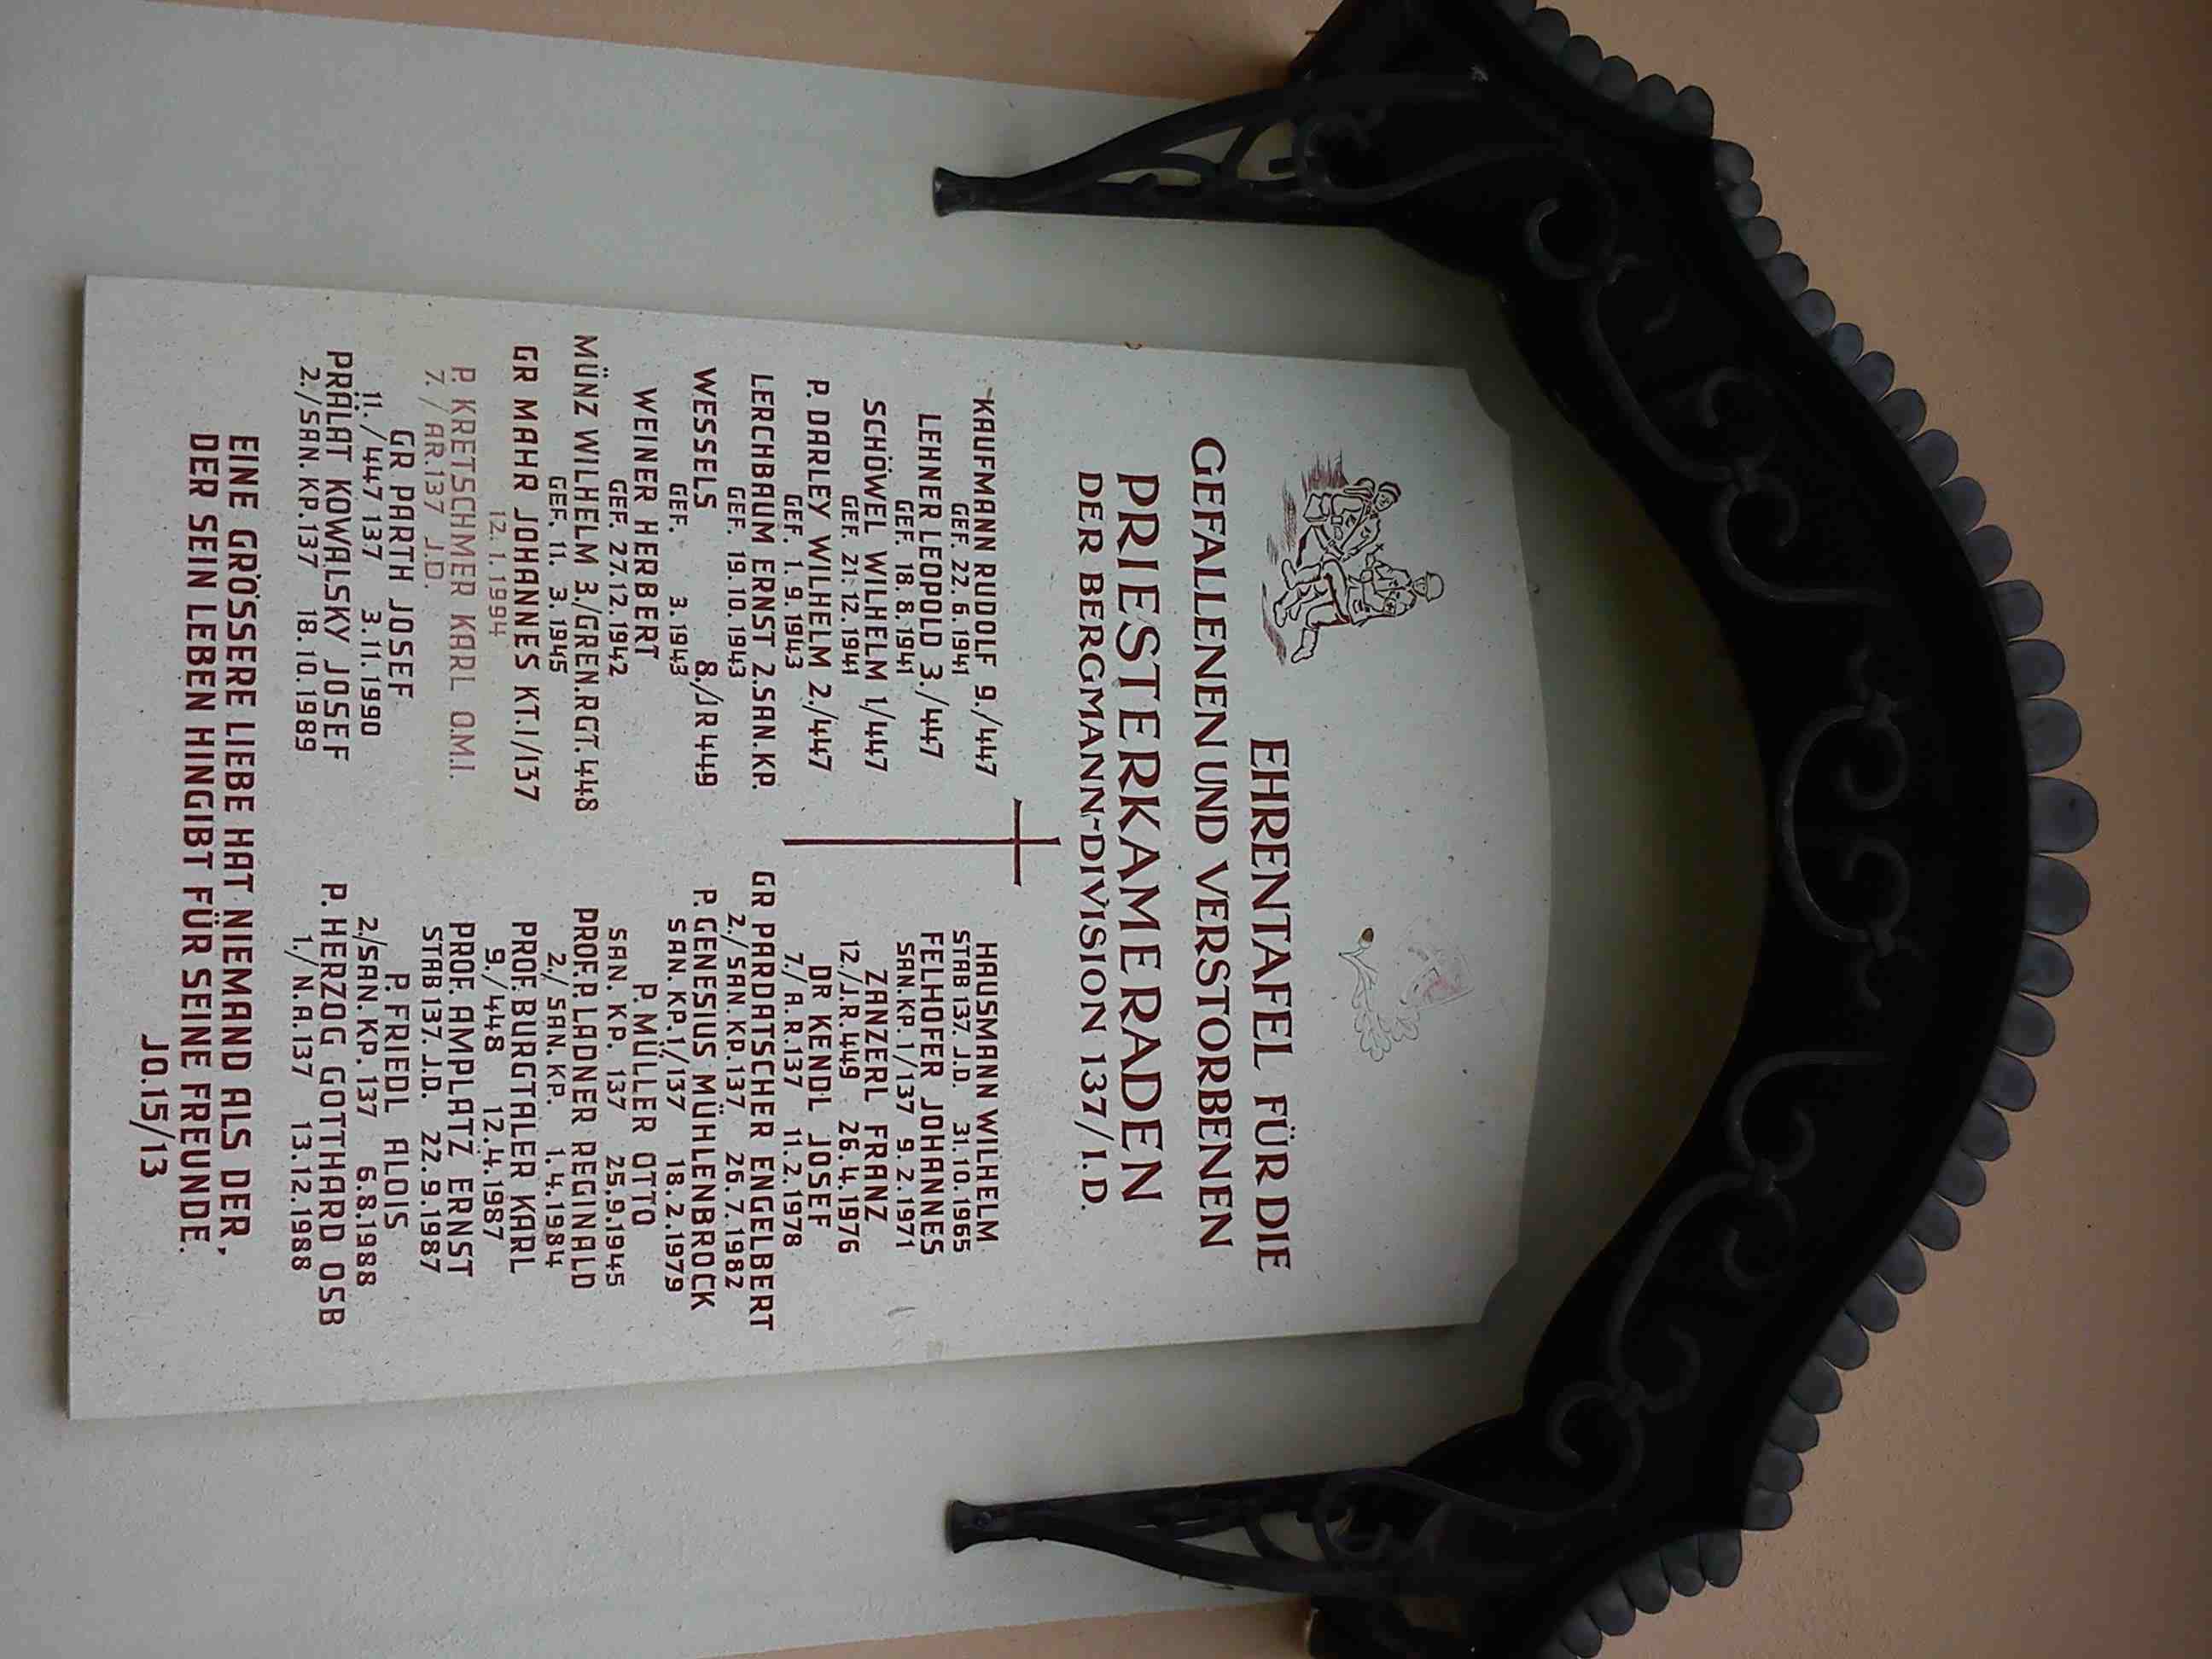 EHRENTAFEL FÜR DIE
GEFALLENEN UND VERSTORBENEN
PRIESTERKAMERADEN
DER BERGMANN-DIVISION 137/I.D.
KAUFMANN RUDOLF 9./447
GEF. 22.6.1941
LEHNER LEOPOLD 3./447
GEF. 18.8.1941
SCHÖWEL WILHELM 1/447
GEF. 21.12.1941
P. DARLEY WILHELM 2./447
GEF. 1.9.1943
LERCHBAUM ERNST 2.SAN.KP.
GEF. 19.10.1943
WESSELS 8./JR 449
GEF. 3.1943
WEINER HERBERT
GEF. 27.12.1942
MÜNZ WILHELM 3./GREN.RGT.448
GEF. 11. 3. 1945
GR MAHR JOHANNES KT.1/137
12.1.1994
P. KRETSCHMER KARL O.M.I.
7. / AR.137 J.D.
GR PARTH JOSEF
11. /447 137 3.11.1990
PRÄLAT KOWALSKY JOSEF
2./SAN.KP.137 18.10.1989
HAUSMANN WILHELM
STAB 137. J.D. 31.10.1965
FELHOFER JOHANNES
SAN.KP.1/137 9.2.1971
ZANZERL FRANZ
12./J.R.449 26.4.1976
DR KENDL JOSEF
7./A.R.137 11.2.1978
GR PARDATSCHER ENGELBERT
2./SAN.KP.137 26.7.1982
P. GENESIUS MÜHLENBROCK
SAN.KP.1/137 18.2.1979
P. MÜLLER OTTO
SAN. KP. 137 25.9.1945
PROF. P. LADNER REGINALD
2./SAN.KP. 1.4.1984
PROF. BURGTALER KARL
9./448 12.4.1987
PROF. AMPLATZ ERNST
STAB 137. J.D. 22.9.1987
P. FRIEDL ALOIS
2./SAN.KP. 137 6.8.1988
P. HERZOG GOTTHARD OSB
1./N.A.137 13.12.1988
EINE GRÖSSERE LIEBE HAT NIEMAND ALS DER,
DER SEIN LEBEN HINGIBT FÜR SEINE FREUNDE.
JO.15/13